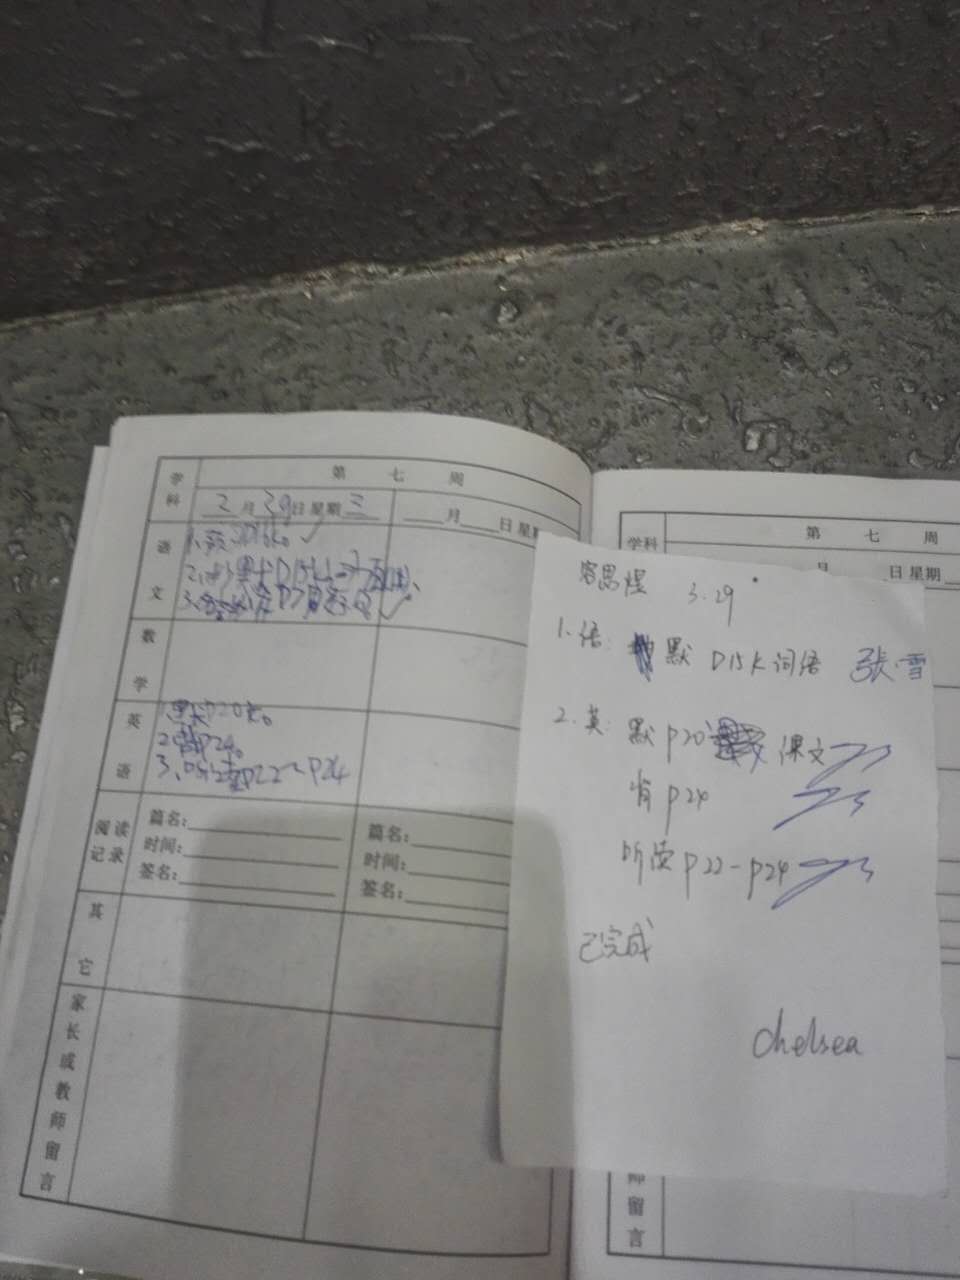 学科 第 七 周
月29日 星期三 月 日 星期
语文
数学
英语
1.默P20
2.背P24。
3.听读P22~P24
阅读记录
篇名: 篇名:
时间: 时间:
签名: 签名:
其它
家长或教师留言
学科 第 七 周
月 日 星期
容思煜 3.29
1.语: 默 P15K词语 张雪
2.英: 默 P20 课文
背 P24
听读 P22-P24
已完成
Chelsea
师留言